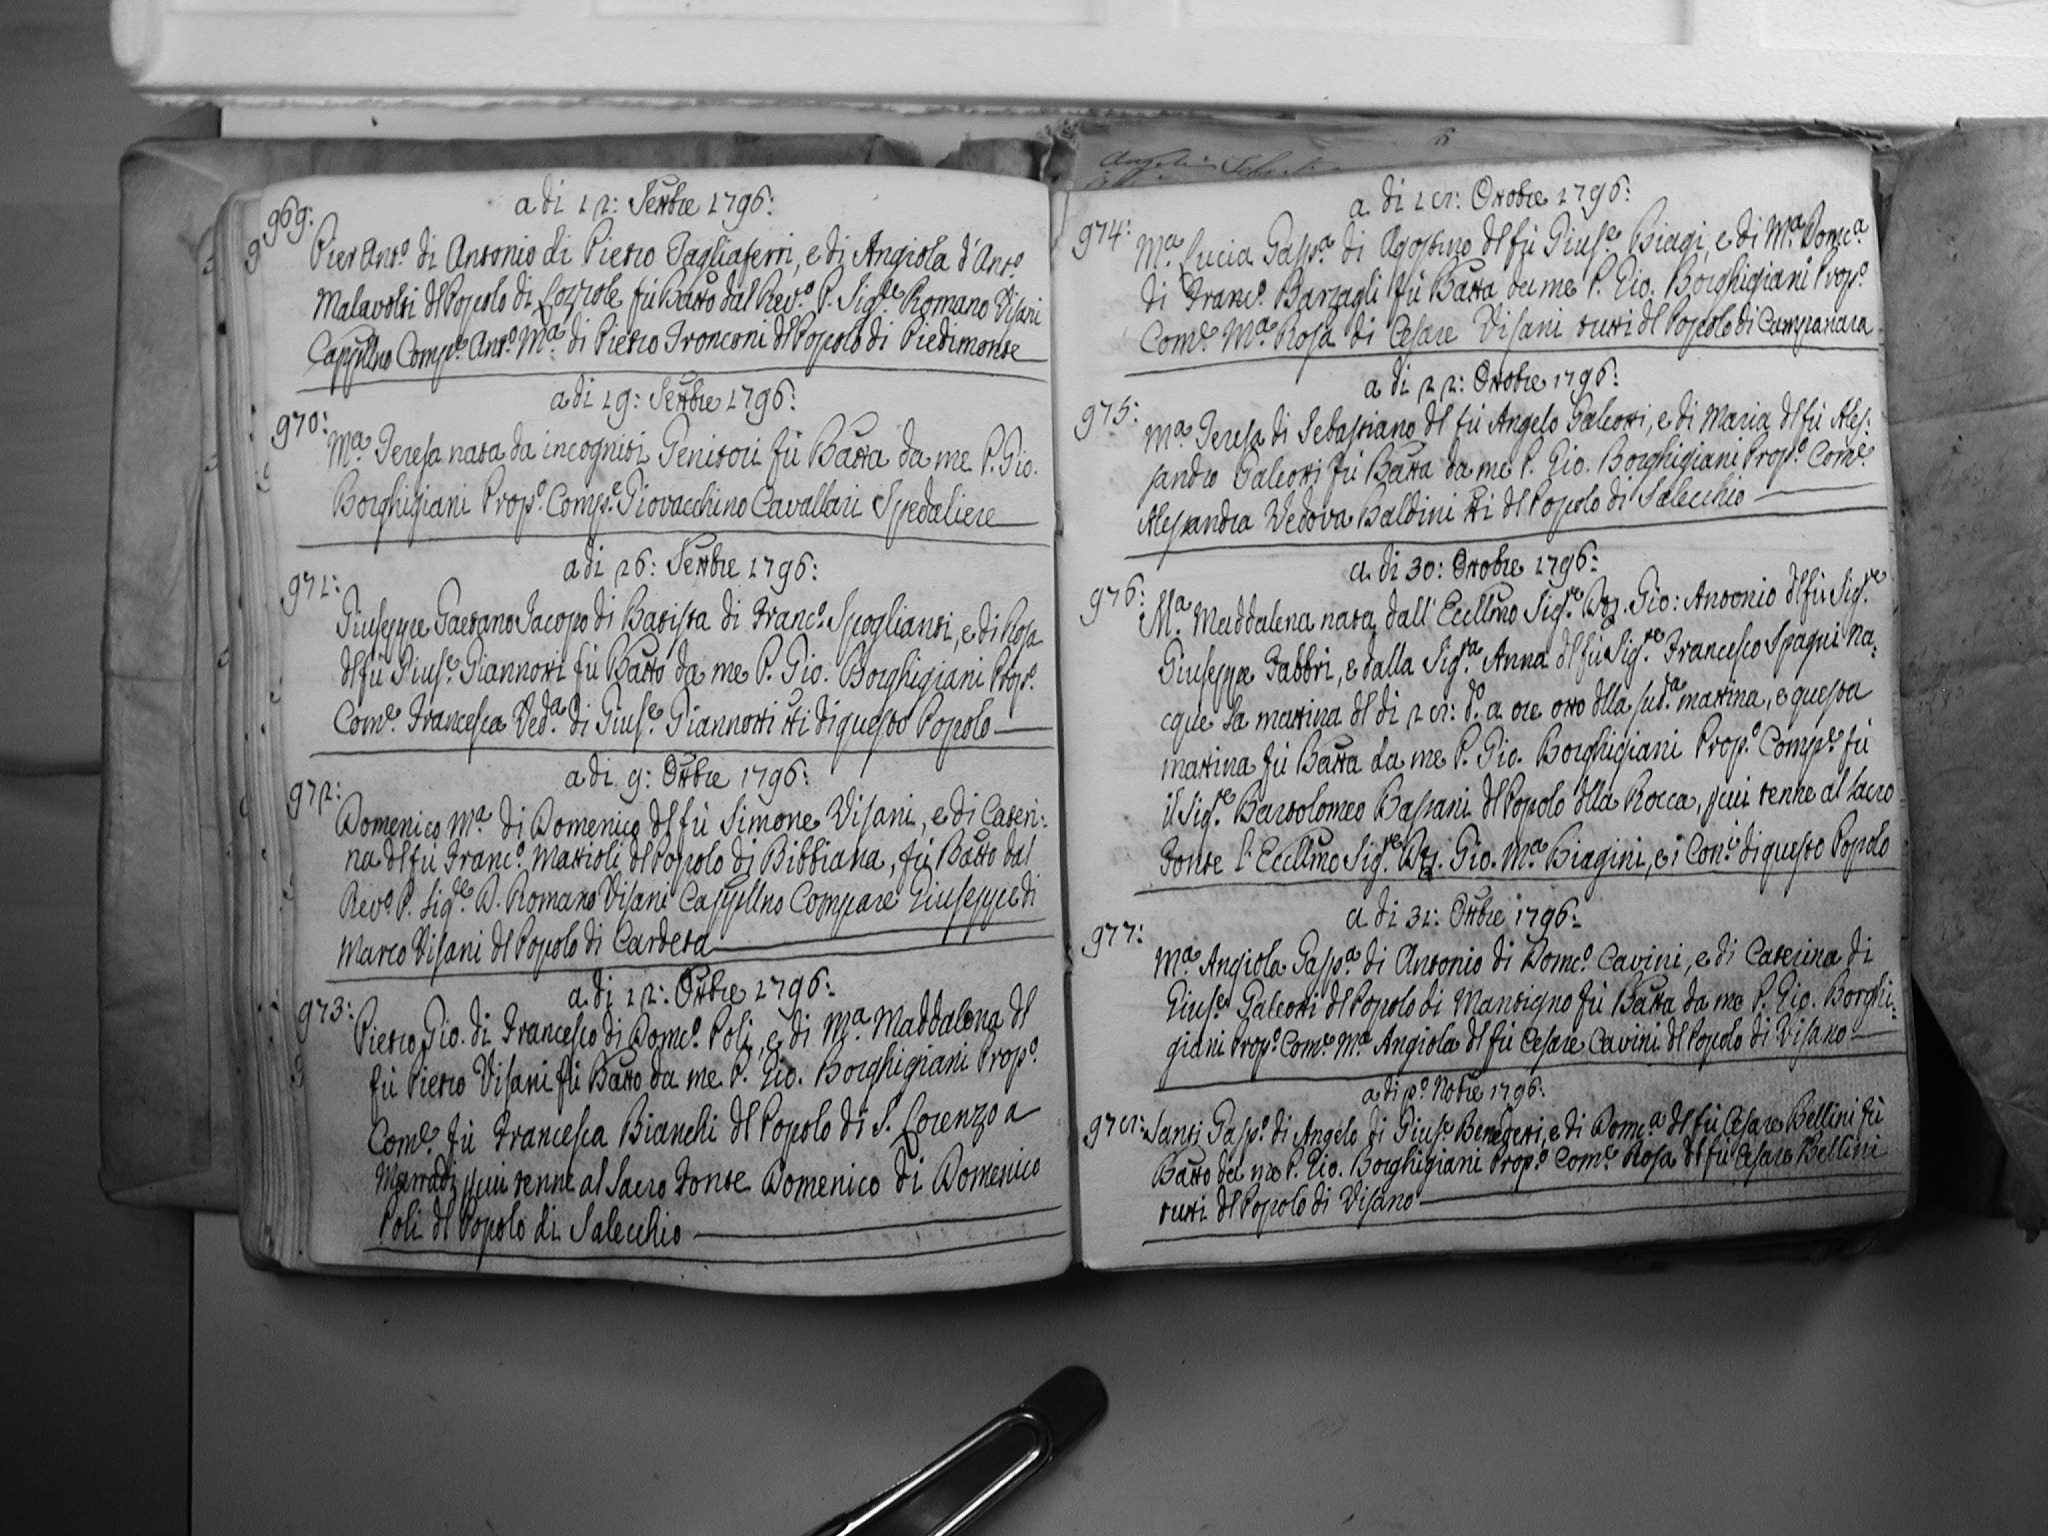 a di 12: Settbre 1796:
969:
Pier Ant.º di Antonio di Pietro Tagliaferri, e di Angiola d'Ant.º
Malavolti dl Popolo di Lozzole fù Batto dal Rev.º P. Sig.re Romano Visani
Cappllno Comp.e Ant.º M.a di Pietro Tronconi dl Popolo di Piedimonte
a di 19: Settbre 1796:
970:
M.a Teresa nata da incogniti Genitori fù Batta da me P. Gio.
Borghigiani Prop.º Comp.e Giovacchino Cavallari Spedaliere
a di 26: Settbre 1796:
971:
Giuseppe Gaetano Jacopo di Batista di Franc.º Scoglianti, e di Rosa
dl fù Gius.e Giannotti fù Batto da me P. Gio. Borghigiani Prop.º
Com.e Francesca Ved.a di Gius.e Giannotti tti di questo Popolo
a di 9: Ottbre 1796:
972:
Domenico M.a di Domenico dl fù Simone Visani, e di Cateri-
na dl fù Franc.º Mattioli dl Popolo di Bibbiana, fù Batto dal
Rev.º P. Sig.re D. Romano Visani Cappllno Compare Giuseppe di
Marco Visani dl Popolo di Cardeta
a di 12: Ottbre 1796:
973:
Pietro Gio. di Francesco di Dom.co Poli, e di M.a Maddalena dl
fù Pietro Visani fù Batto da me P. Gio. Borghigiani Prop.º
Com.e fù Francesca Bianchi dl Popolo di S. Lorenzo a
Marradi, p cui tenne al Sacro Fonte Domenico di Domenico
Poli dl Popolo di Salecchio
a di 18: Ottobre 1796:
974:
M.a Lucia Gasp.a di Agostino dl fù Gius.e Biagi, e di M.a Domc.a
di Franc.º Barzagli fù Batta da me P. Gio. Borghigiani Prop.º
Com.e M.a Rosa di Cesare Visani tutti dl Popolo di Campanara
a di 22: Ottobre 1796:
975:
M.a Teresa di Sebastiano dl fù Angelo Galeotti, e di Maria dl fù Ales-
sandro Galeotti fù Batta da me P. Gio. Borghigiani Prop.º Com.e
Alessandra Vedova Baldini tti dl Popolo di Salecchio
a di 30: Ottobre 1796:
976:
M.a Maddalena nata dall'Ecellmo Sig.re Gio: Antonio dl fù Sig.re
Giuseppe Fabbri, e dalla Sig.ra Anna dl fù Sig.re Francesco Spagni na-
cque la mattina dl di 28: d.º a ore otto dlla sud.a mattina, e questa
mattina fù Batta da me P. Gio. Borghigiani Prop.º Comp.e fù
il Sig.re Bartolomeo Bassani dl Popolo dlla Rocca, p cui tenne al sacro
Fonte l'Ecellmo Sig.re Gio. M.a Biagini, e i Con.i di questo Popolo
a di 31: Ottbre 1796:
977:
M.a Angiola Gasp.a di Antonio di Domc.º Cavini, e di Caterina di
Gius.e Galeotti dl Popolo di Mantigno fù Batta da me P. Gio. Borghi-
giani Prop.º Com.e M.a Angiola dl fù Cesare Cavini dl Popolo di Visano
a di p.º Nobre 1796:
978:
Santi Gasp.e di Angelo di Gius.e Benedetti, e di Domc.a dl fù Cesare Bellini fù
Batto da me P. Gio. Borghigiani Prop.º Com.e Rosa dl fù Cesare Bellini
tutti dl Popolo di Visano